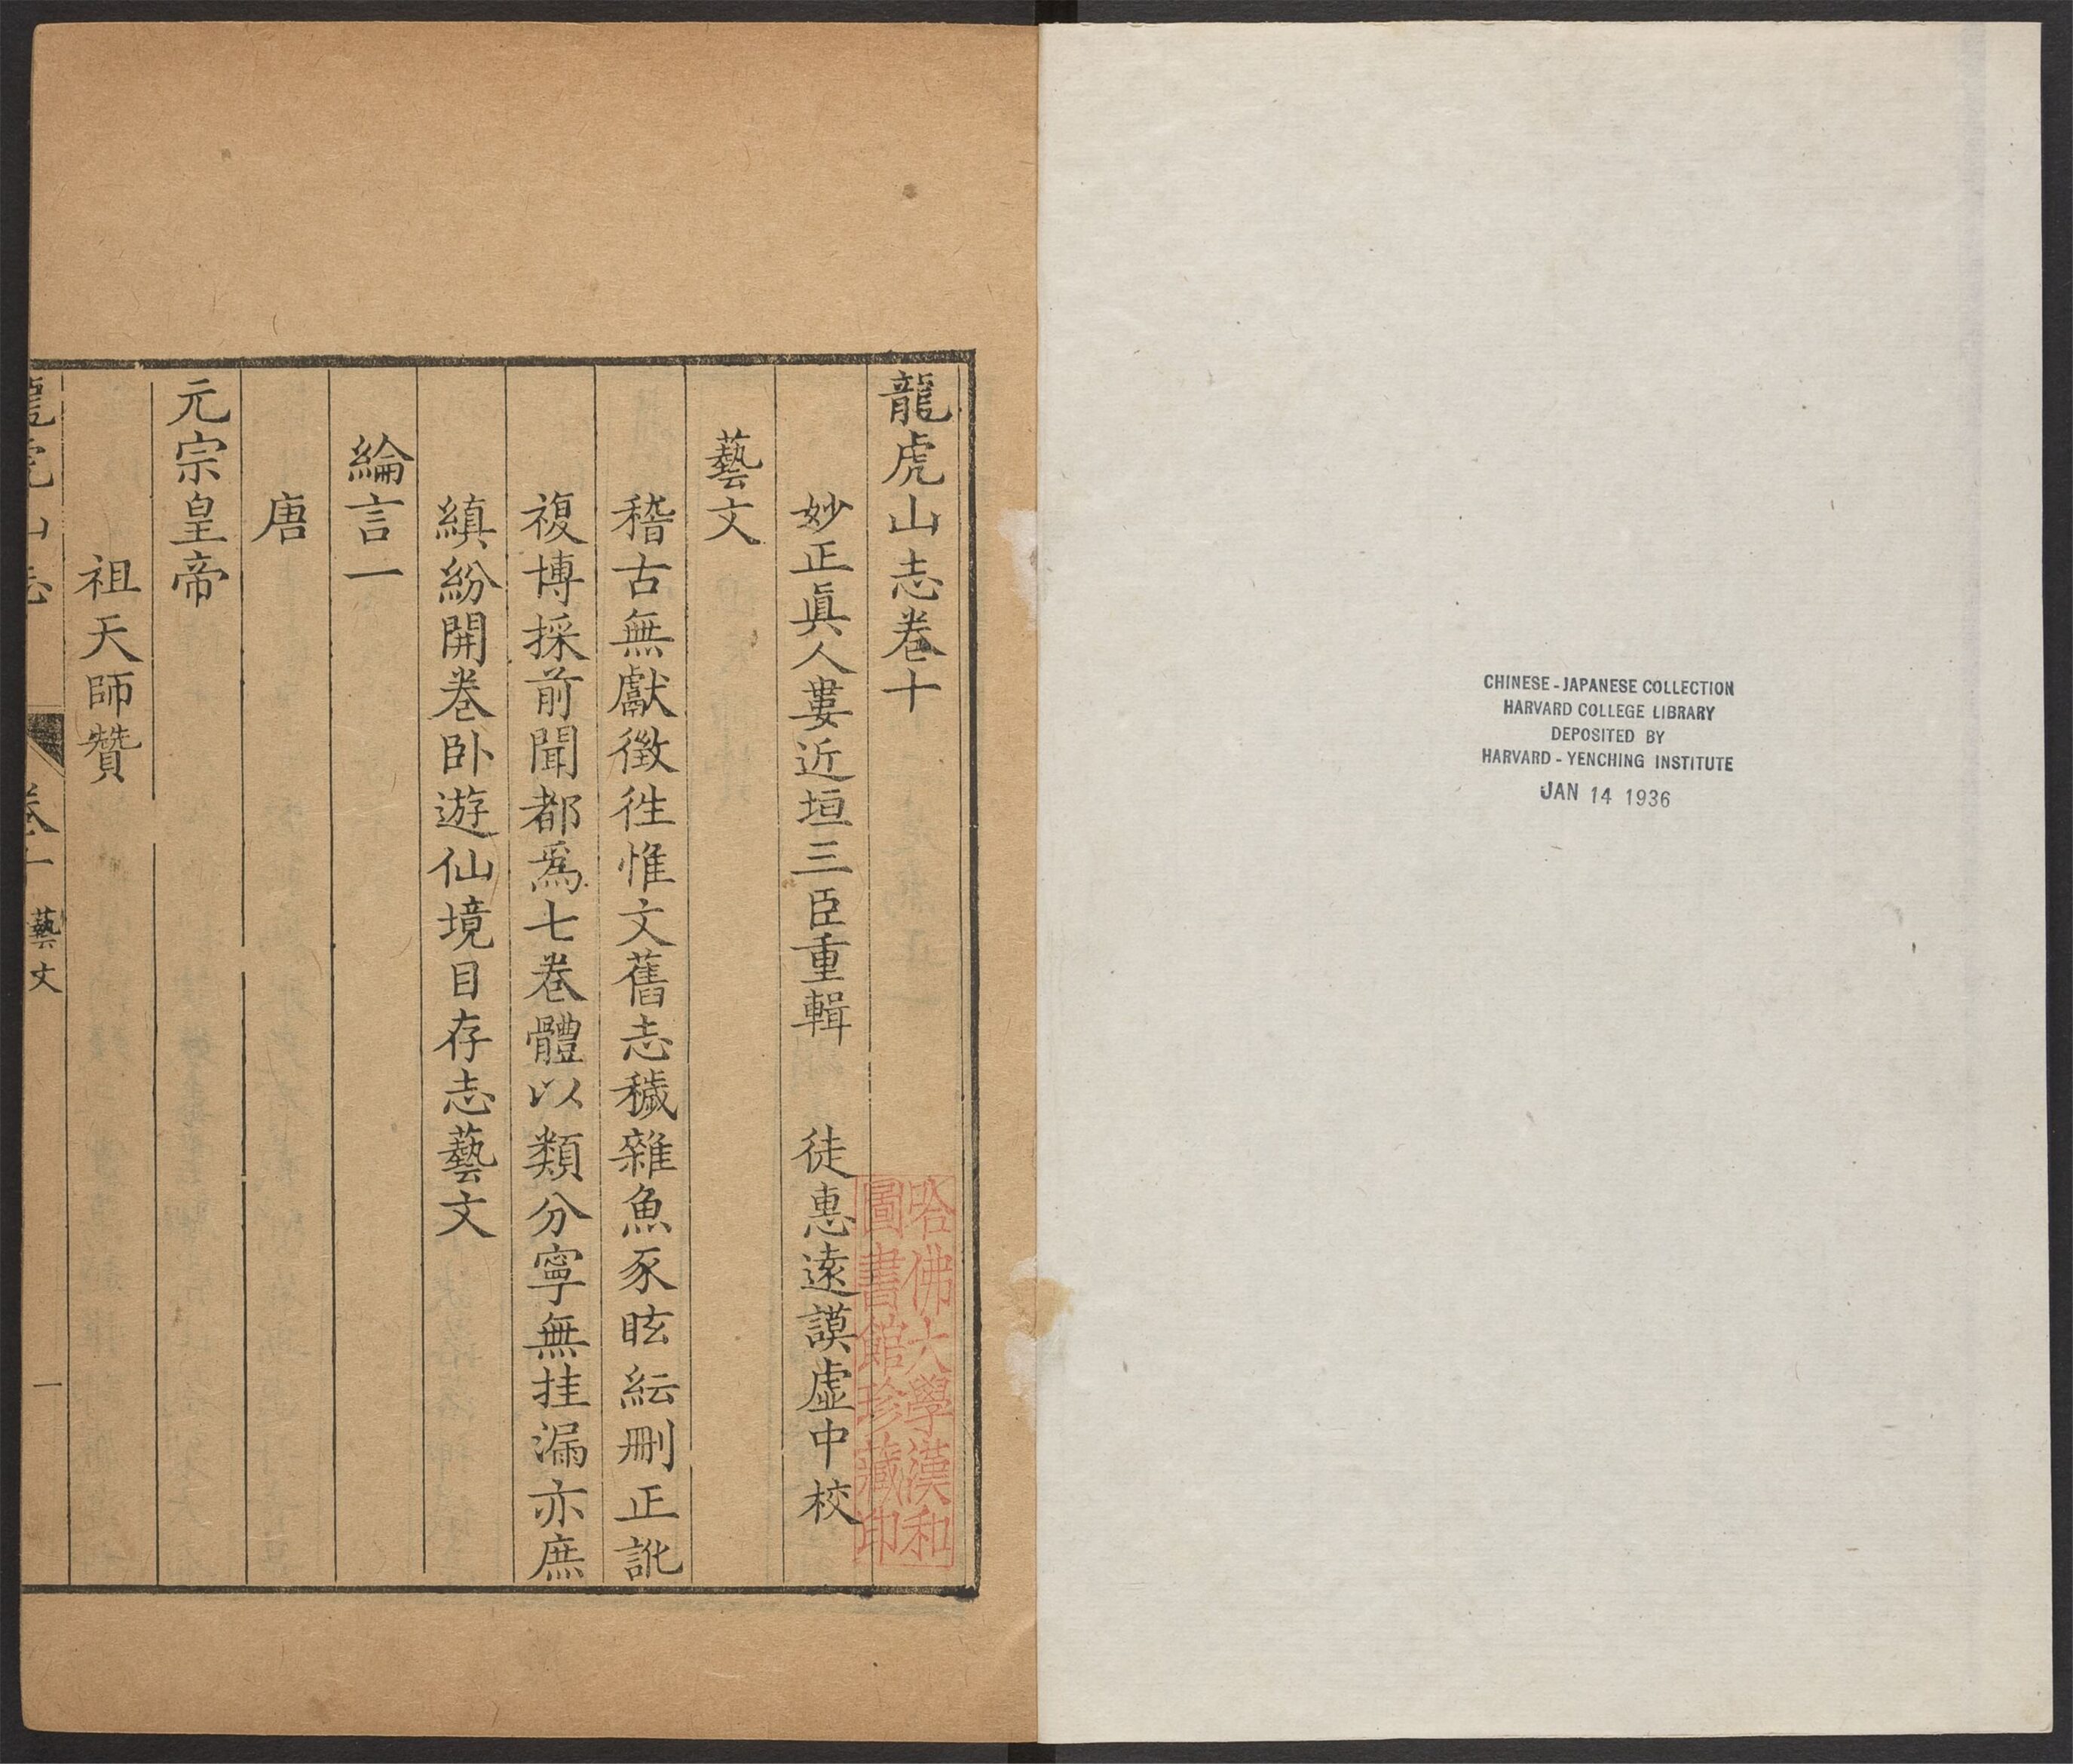 CHINESE-JAPANESE COLLECTION
HARVARD COLLEGE LIBRARY
DEPOSITED BY
HARVARD-YENCHING INSTITUTE
JAN 14 1936
龍虎山志卷十
妙正眞人婁近垣三臣重輯 徒惠遠謨虛中校
藝文
稽古無獻徵徃惟文舊志穢雜魚豕眩紜刪正訛
複博採前聞都爲七卷體以類分寧無挂漏亦庶
縝紛開卷卧遊仙境目存志藝文
綸言一
唐
元宗皇帝
祖天師贊
龍虎山志 卷十 藝文 一
哈佛大學漢和
圖書館珍藏印